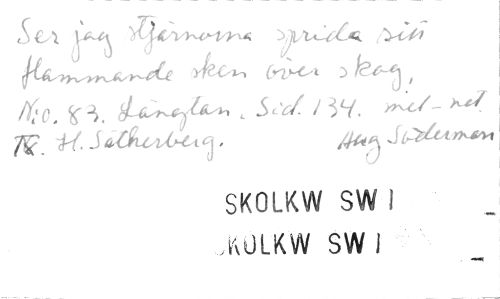 Ser jag stjärnorna sprida sitt
flammande sken över skog,
N:o. 83. Längtan. Sid. 134. mel-net
IX. H. Sätherberg. Aug Söderman
SKOLKW SW I
SKOLKW SW I